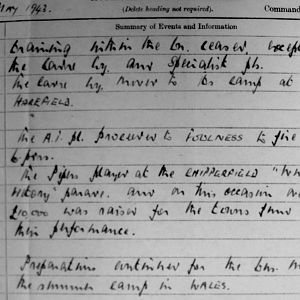 MAY 1943.
(Delete heading not required).
Command
Summary of Events and Information
training within the bn. ceased, except
the Carrier and Specialist pls.
the moved to its camp at
HOREFIELD.
The A.T. pl. proceeded to FOULNESS to fire
6 pdrs.
The Pipers played at the CHIPPERFIELD
parade. and on this occasion
£10,000 was raised for the towns fund
their performance.
Preparations continued for the bn. m
the summer camp in WALES.